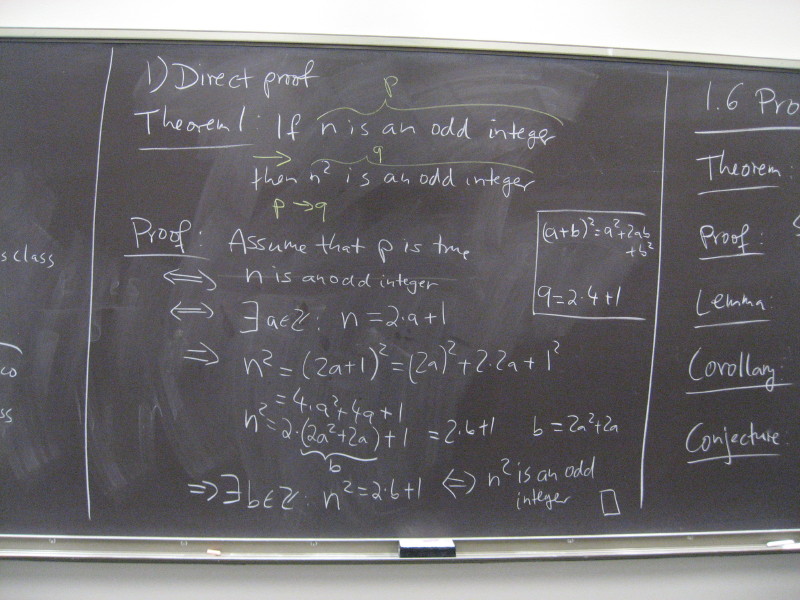 s class
co
ss
1) Direct proof
p
Theorem 1: If n is an odd integer
q
→ then n² is an odd integer
p → q
Proof: Assume that p is true
⟺ n is an odd integer
⟺ ∃ a∈ℤ: n = 2·a+1
⟹ n² = (2a+1)² = (2a)² + 2·2a + 1²
= 4·a² + 4a + 1
n² = 2·(2a²+2a) + 1 = 2·b+1 b = 2a²+2a
b
⟹ ∃ b∈ℤ: n² = 2·b+1 ⟺ n² is an odd
integer □
(a+b)² = a²+2ab
+b²
9 = 2·4+1
1.6 Pro
Theorem:
Proof:
Lemma:
Corollary:
Conjecture: